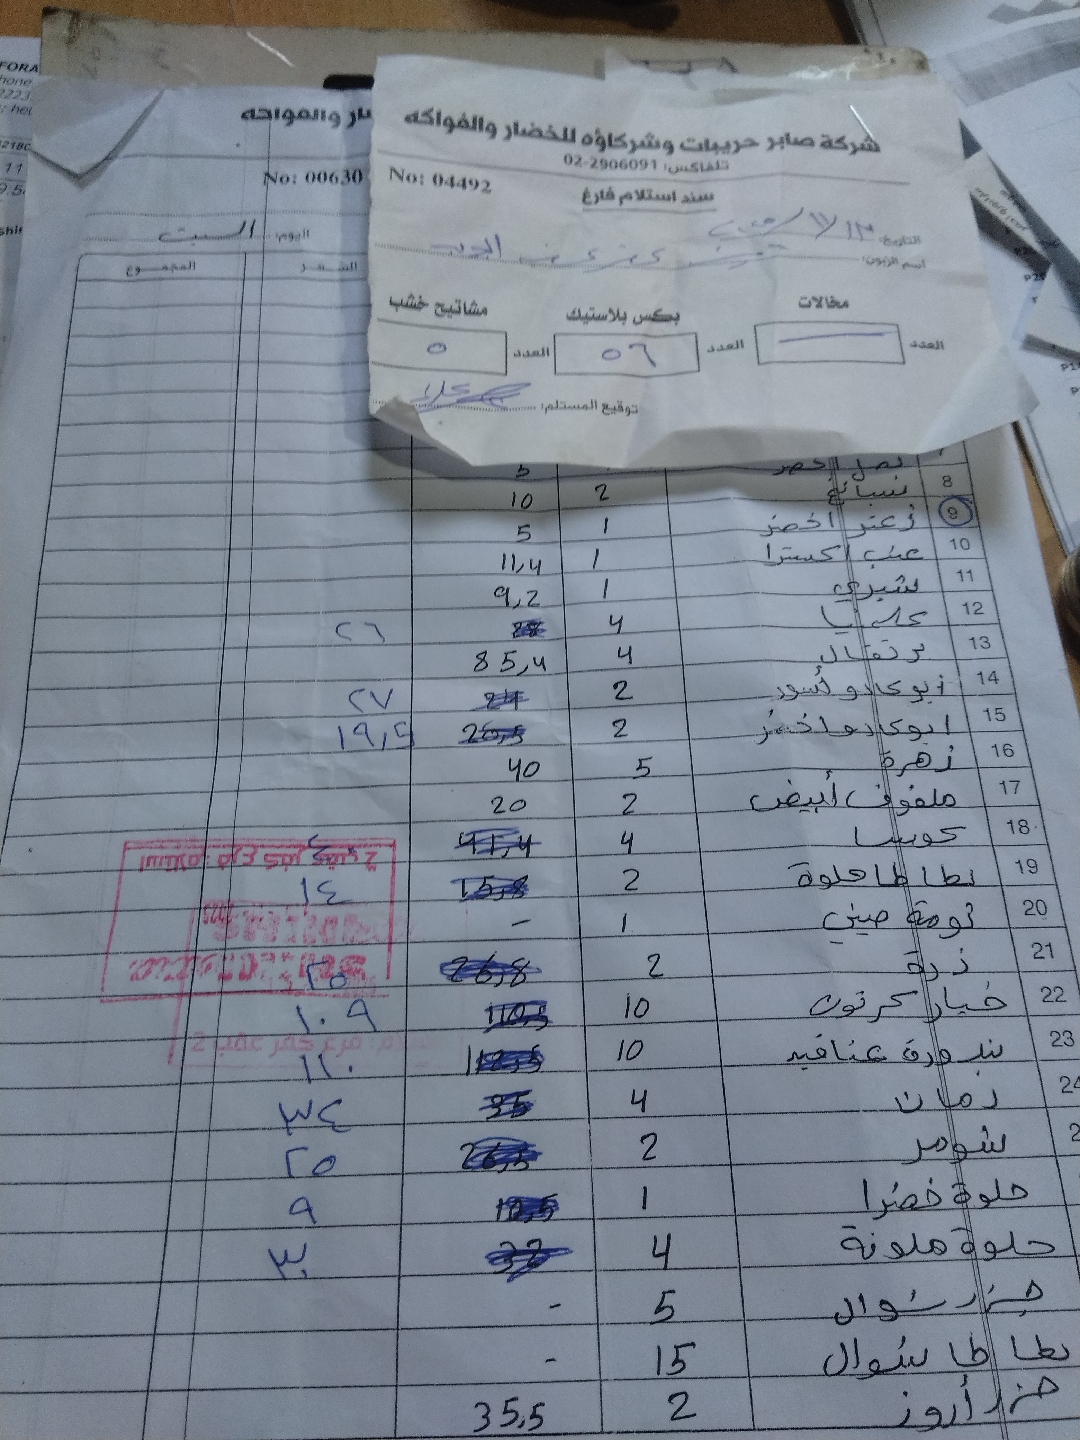 شركة صابر حريبات وشركاؤه للخضار والفواكه
تلفاكس: 02-2906091
No: 04492
سند استلام فارغ
التاريخ: ١٣/٧/
اسم الزبون:
مخالات
بكس بلاستيك
مشاتيح خشب
العدد
العدد ٥٦
العدد ٥
توقيع المستلم:
No: 00630
اليوم: السبت
السعر المجموع
بصل اخضر 5
8 سبانخ 2 10
9 زعتر اخضر 1 5
10 عنب اكسترا 1 11,4
11 شيري 1 9,2
12 4 ٢٦
13 برتقال 4 85,4
14 ابوكادو أسود 2 ٢٧
15 ابوكادو اخضر 2 20,5 ١٩,٥
16 زهرة 5 40
17 ملفوف أبيض 2 20
18 كوسا 4 41,4
19 بطاطا حلوة 2 15,8 ١٤
20 ثومة صيني 1 -
21 ذرة 2 26,8 ٢٥
22 خيار كرتون 10 110,5 ١٠٩
23 بندورة عناقيد 10 112,5 ١١٠
24 رمان 4 35 ٣٤
2 شومر 2 26,5 ٢٥
حلوة خضرا 1 10,5 ٩
حلوة ملونة 4 32 ٣٠
جزر شوال 5 -
بطاطا شوال 15 -
جزر أروز 2 35,5
استلام: فرع كفر عقب 2